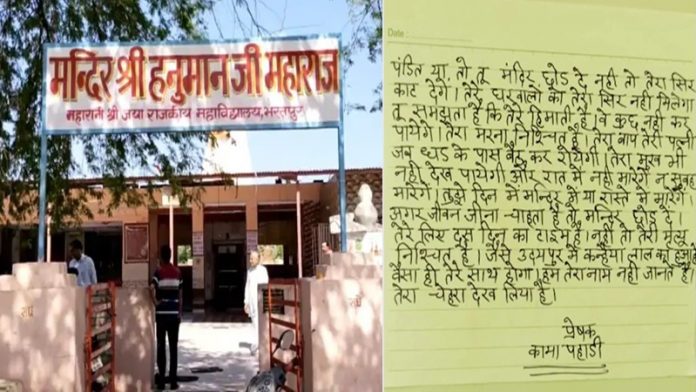 मन्दिर श्री हनुमान जी महाराज
महारानी श्री जया राजकीय महाविद्यालय, भरतपुर
Date :
पंडित या तो तू मंदिर छोड दे नही तो तेरा सिर
काट देगें। तेरे घरवालो को तेरा सिर नही मिलेगा
तू समझता है कि तेरे हिमाती है। वे कुछ नही कर
पायेगें। तेरा मरना निश्चित है। तेरा बाप तेरी पत्नी
जब धड के पास बैठ कर रोयेगी। तेरा मुख भी
नही देख पायेगी और रात में नही मारेगें न सुबह
मारेगें। तुझे दिन में मन्दिर में या रास्ते में मारेगें
अगर जीवन जीना चाहता है तो मन्दिर छोड दे।
तेरे लिए दस दिन का टाइम है। नही तो तेरी मृत्यु
निश्चित है। जैसे उदयपुर में कन्हैया लाल का हुआ है
वैसा ही तेरे साथ होगा। हम तेरा नाम नही जानते है।
तेरा चेहरा देख लिया है।
प्रेषक
कामा पहाडी